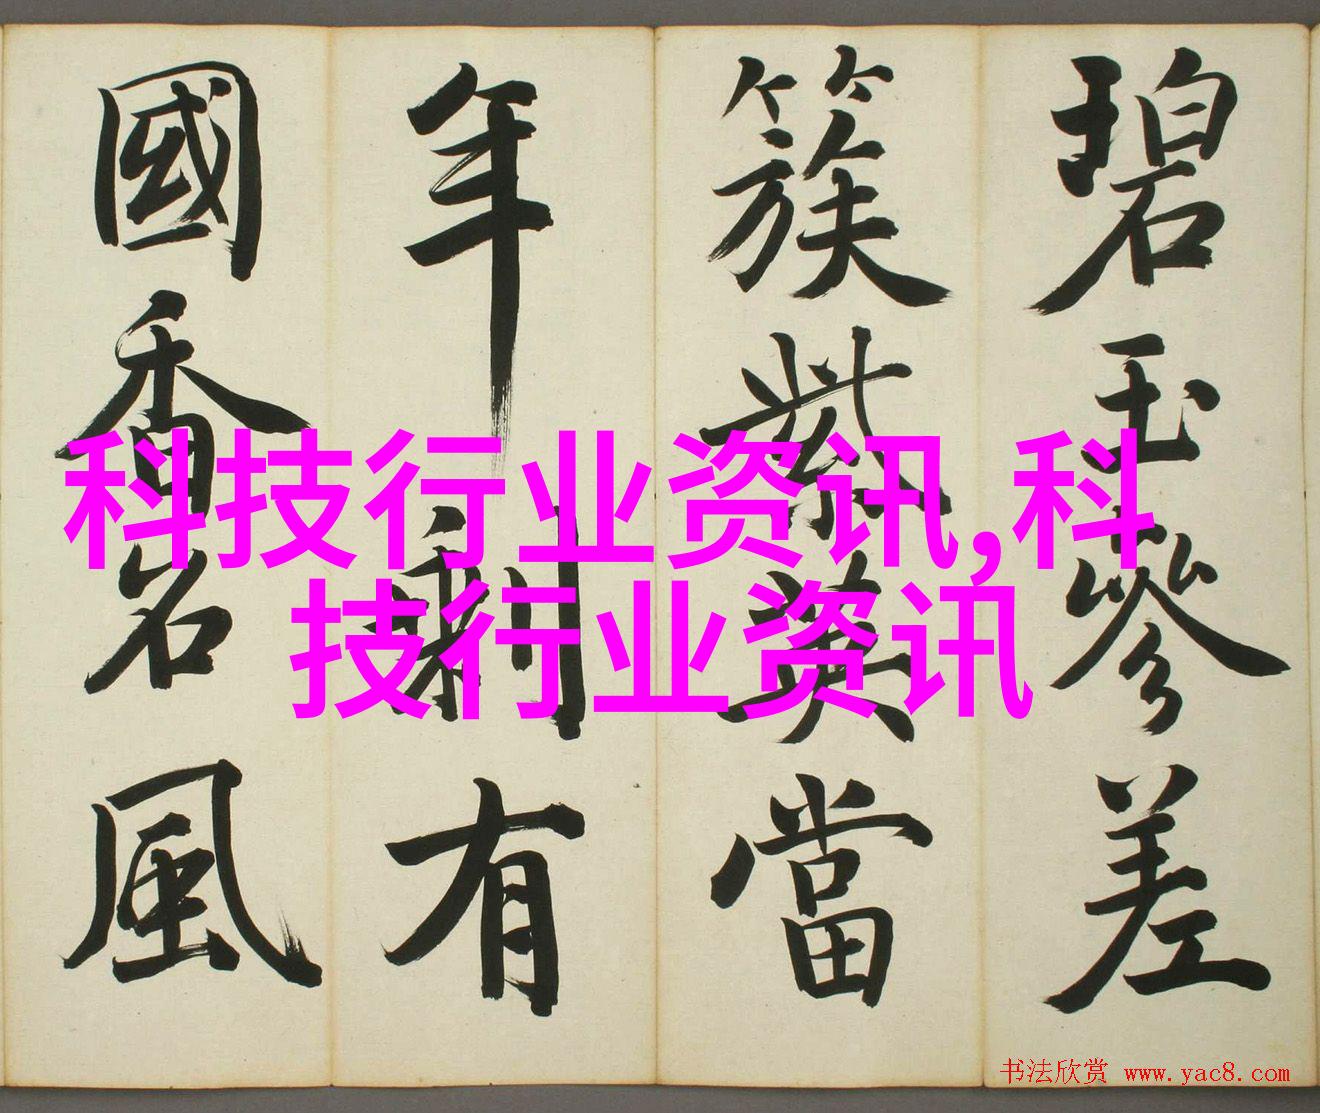 碧玉參差
簇紫英當
年剩有
國香名風
科技行业资讯,科
技行业资讯
书法欣赏 www.yac8.com